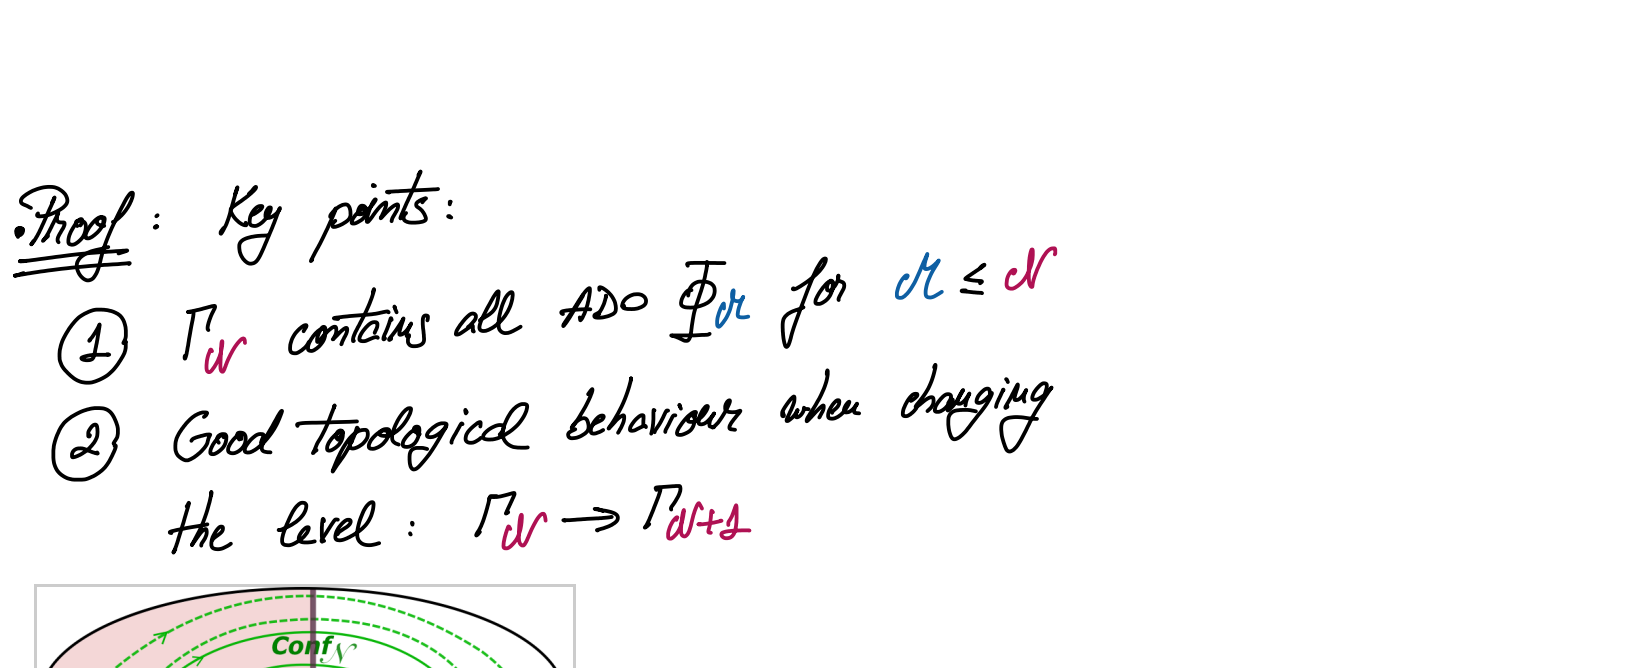 • Proof : Key points:
① Γ_𝒩 contains all ADO Φ_ℳ for ℳ ≤ 𝒩
② Good topological behaviour when changing
the level : Γ_𝒩 → Γ_𝒩+1
Conf_𝒩